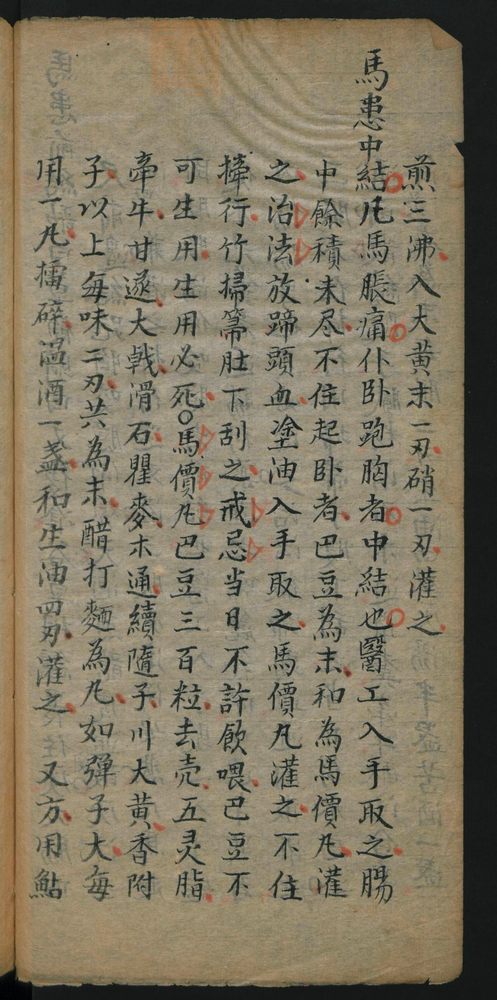 煎三沸入大黄末一刃硝一刃灌之
馬患中結凡馬脹痛仆卧跑胸者中結也醫工入手取之腸
中餘積未尽不住起卧者巴豆為末和為馬價丸灌
之治法放蹄頭血塗油入手取之馬價丸灌之不住
牽行竹掃箒肚下刮之戒忌当日不許飲喂巴豆不
可生用生用必死〇馬價丸巴豆三百粒去壳五灵脂
牵牛甘遂大戟滑石瞿麥木通續隨子川大黄香附
子以上每味二刃共為末醋打麵為丸如弹子大每
用一丸擂碎温酒一盏和生油四刃灌之又方用鮎